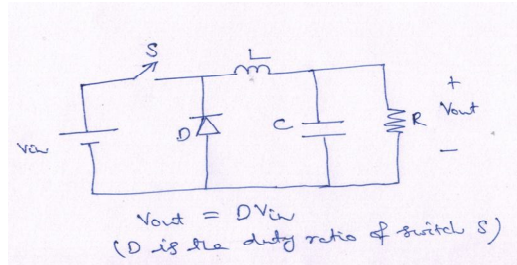 S
L
D
C
R
+
Vout
−
Vin
Vout = DVin
(D is the duty ratio of switch S)